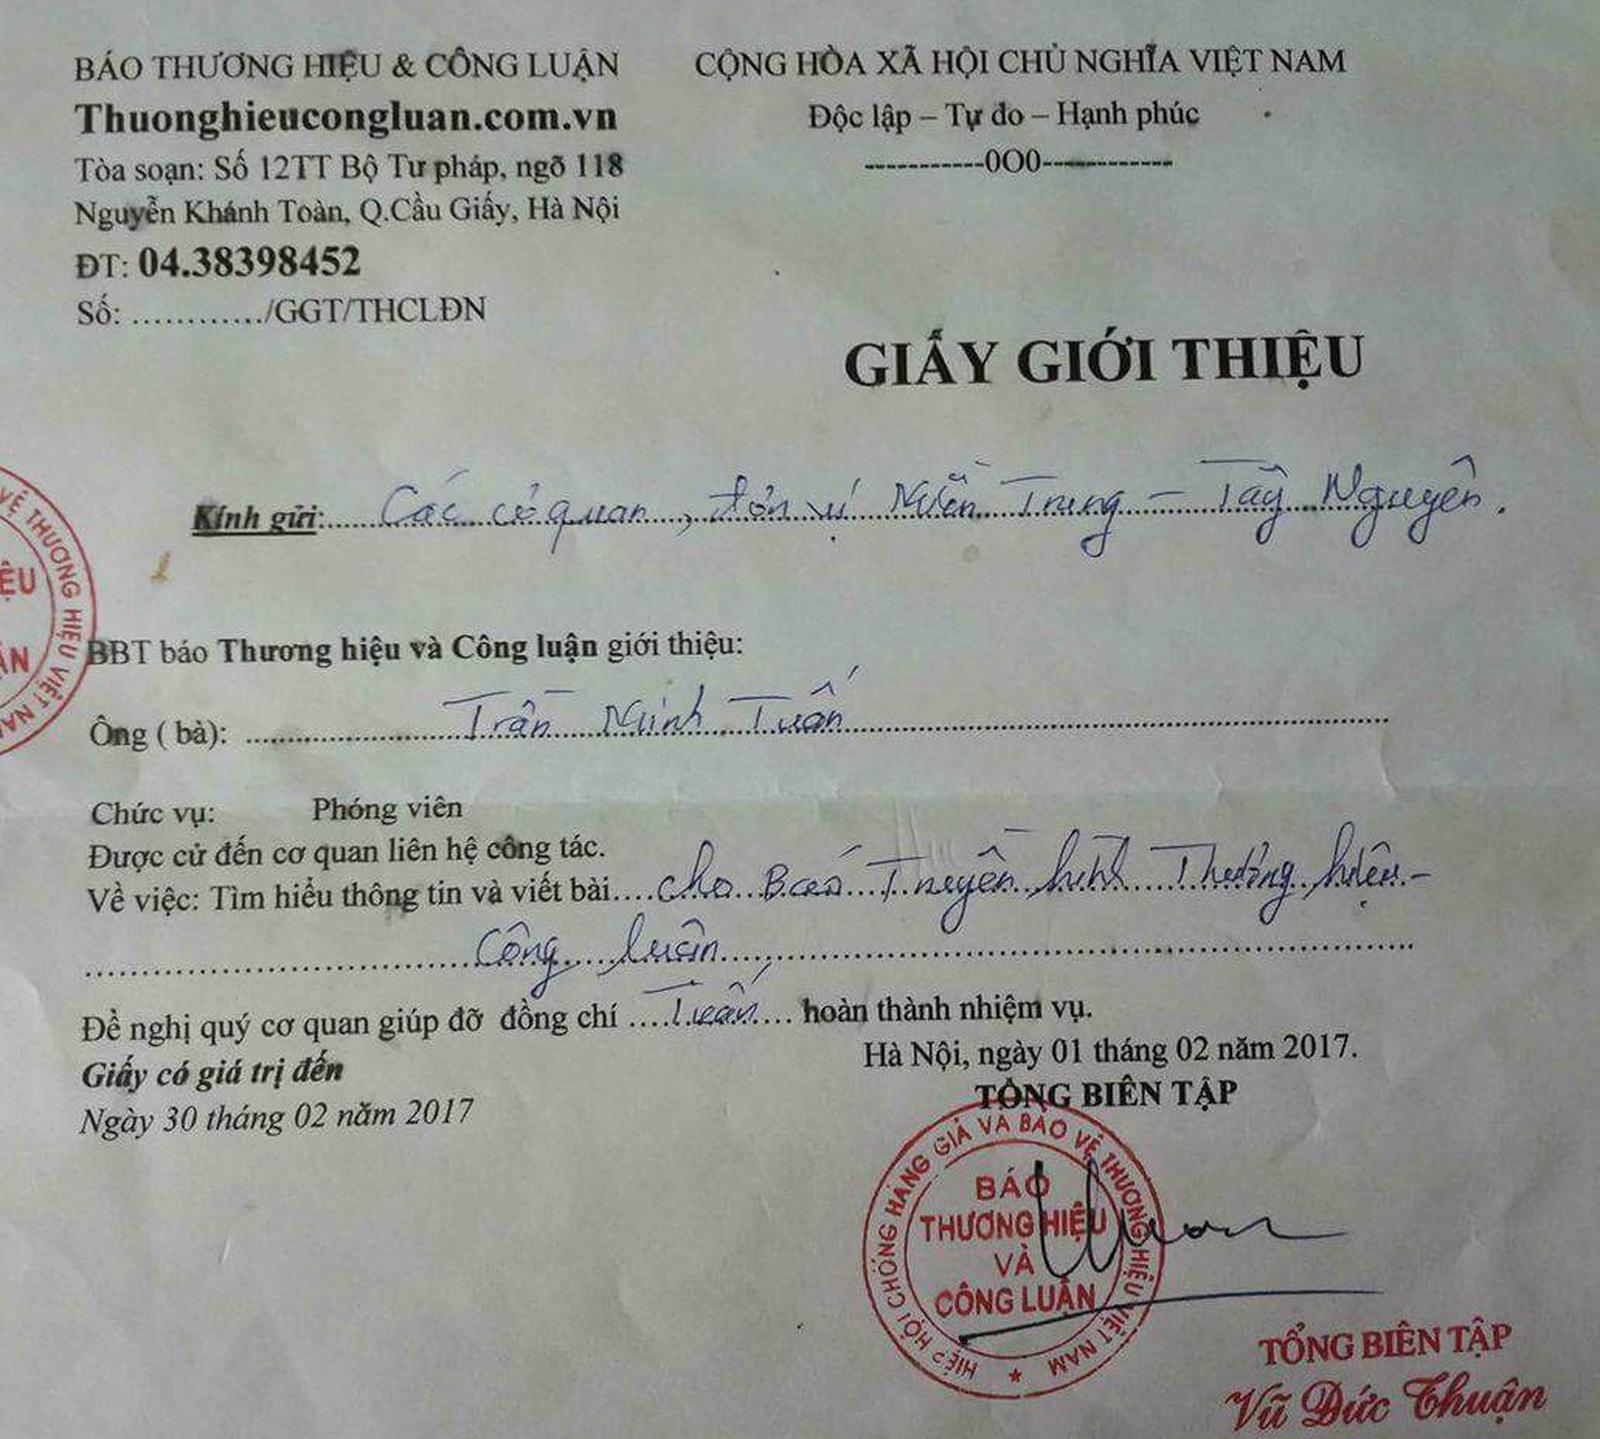 BÁO THƯƠNG HIỆU & CÔNG LUẬN
Thuonghieucongluan.com.vn
Tòa soạn: Số 12TT Bộ Tư pháp, ngõ 118
Nguyễn Khánh Toàn, Q.Cầu Giấy, Hà Nội
ĐT: 04.38398452
Số: ............/GGT/THCLĐN
CỘNG HÒA XÃ HỘI CHỦ NGHĨA VIỆT NAM
Độc lập – Tự do – Hạnh phúc
-----------0O0------------
GIẤY GIỚI THIỆU
Kính gửi: Các cơ quan, đơn vị Miền Trung – Tây Nguyên.
VỆ THƯƠNG HIỆU VIỆT NAM
ỆU
ẬN
BBT báo Thương hiệu và Công luận giới thiệu:
Ông ( bà): Trần Minh Tuấn
Chức vụ: Phóng viên
Được cử đến cơ quan liên hệ công tác.
Về việc: Tìm hiểu thông tin và viết bài....cho Báo Truyền hình Thương hiệu -
Công luận
Đề nghị quý cơ quan giúp đỡ đồng chí ....Tuấn.... hoàn thành nhiệm vụ.
Hà Nội, ngày 01 tháng 02 năm 2017.
Giấy có giá trị đến
TỔNG BIÊN TẬP
Ngày 30 tháng 02 năm 2017
HIỆP HỘI CHỐNG HÀNG GIẢ VÀ BẢO VỆ THƯƠNG HIỆU VIỆT NAM
BÁO
THƯƠNG HIỆU
VÀ
CÔNG LUẬN
TỔNG BIÊN TẬP
Vũ Đức Thuận